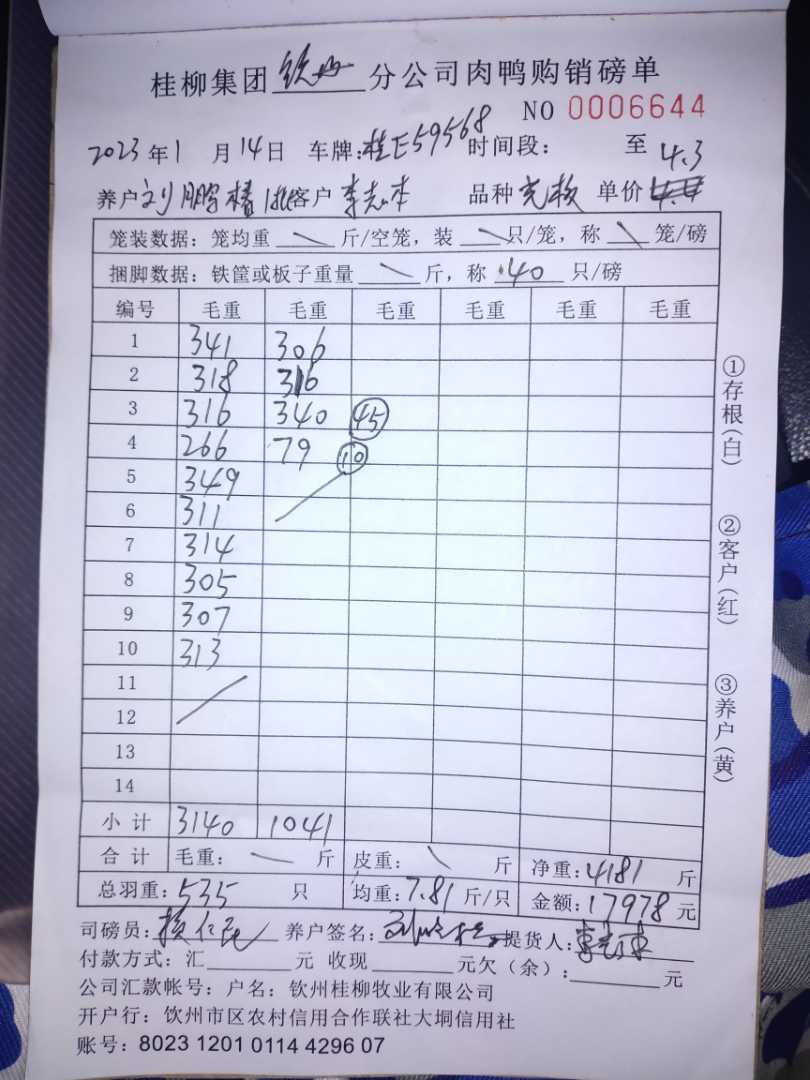 桂柳集团钦州分公司肉鸭购销磅单
NO 0006644
2023年1月14日 车牌:桂E59568 时间段: 至
4.3
养户刘鹏 批客户李志本 品种 单价4.4
笼装数据:笼均重 \ 斤/空笼,装 \ 只/笼,称 \ 笼/磅
捆脚数据:铁筐或板子重量 \ 斤,称 40 只/磅
编号 毛重 毛重 毛重 毛重 毛重 毛重
1 341 306
2 318 316
3 316 340 45
4 266 79 10
5 349
6 311
7 314
8 305
9 307
10 313
11
12
13
14
小计 3140 1041
合计 毛重: 斤 皮重: \ 斤 净重:4181 斤
总羽重:535 只 均重:7.81 斤/只 金额:17978元
司磅员: 养户签名: 提货人:
付款方式:汇 元 收现 元欠(余): 元
公司汇款帐号:户名:钦州桂柳牧业有限公司
开户行:饮州市区农村信用合作联社大垌信用社
账号:8023 1201 0114 4296 07
①存根(白)
②客户(红)
③养户(黄)